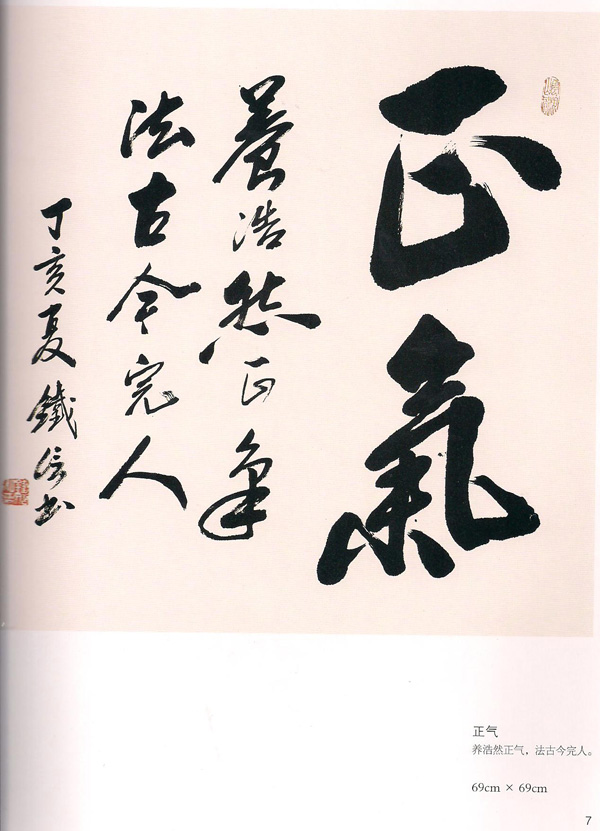 正氣
養浩然正氣
法古今完人
丁亥夏鐵信书
正气
养浩然正气，法古今完人。
69cm × 69cm
7